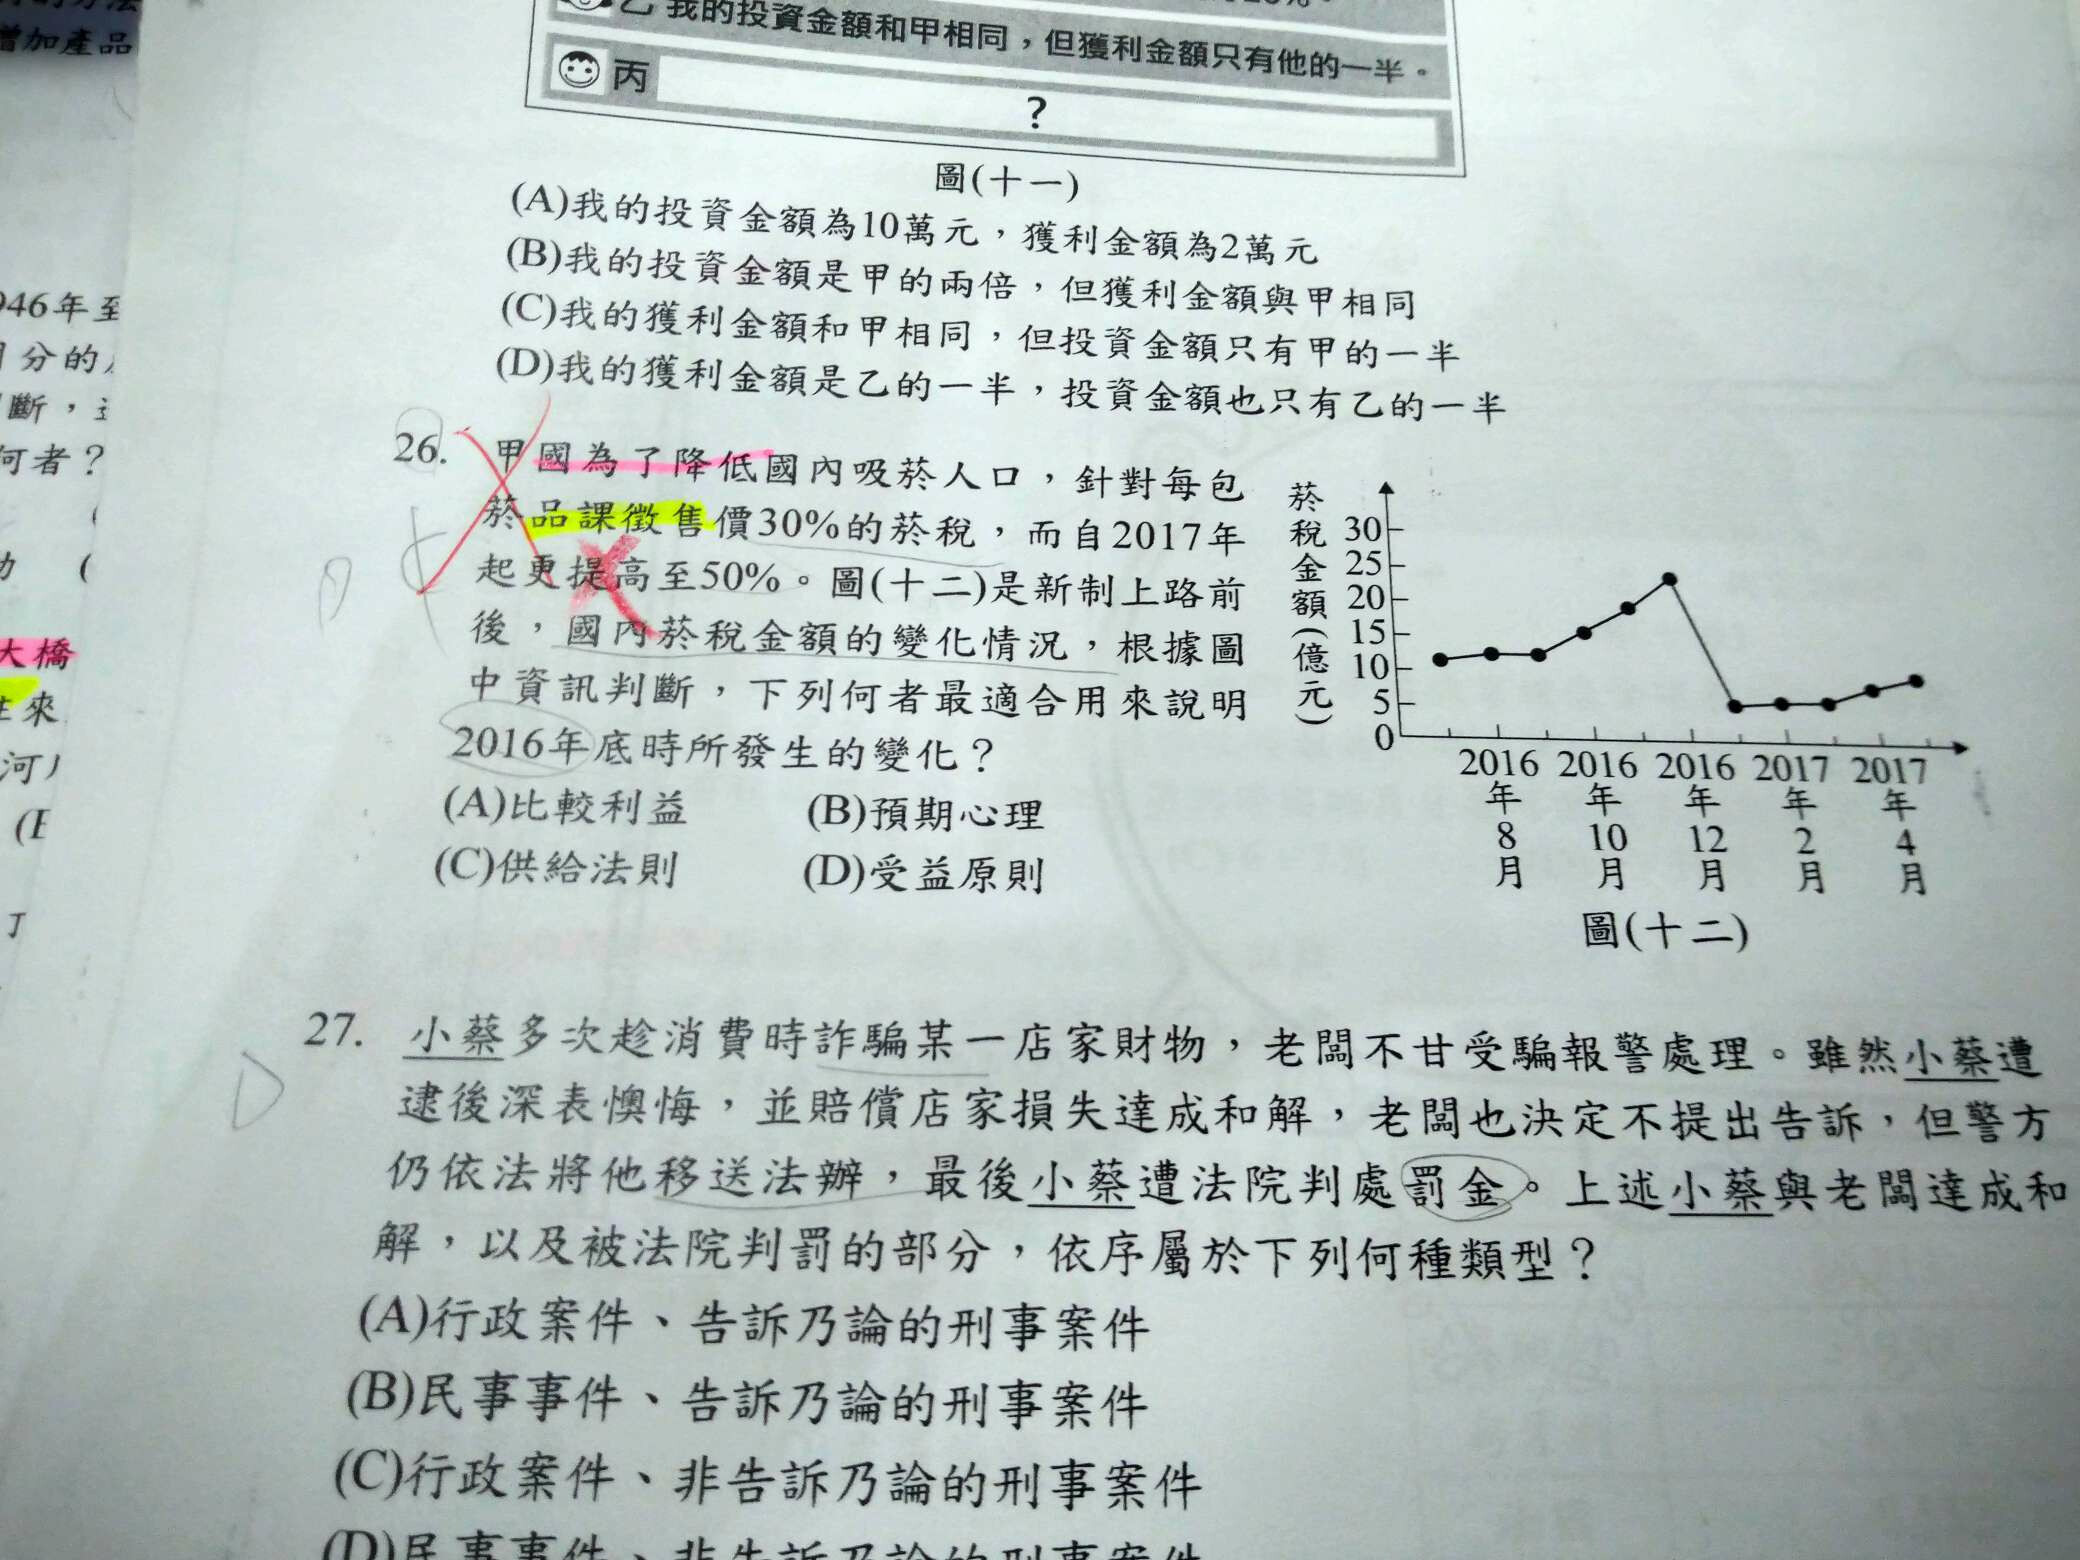 增加產品
946年至
分的
斷，
何者？
大橋
來
河
乙 我的投資金額和甲相同，但獲利金額只有他的一半。
丙
?
圖(十一)
(A)我的投資金額為10萬元，獲利金額為2萬元
(B)我的投資金額是甲的兩倍，但獲利金額與甲相同
(C)我的獲利金額和甲相同，但投資金額只有甲的一半
(D)我的獲利金額是乙的一半，投資金額也只有乙的一半
26. 甲國為了降低國內吸菸人口，針對每包
菸品課徵售價30%的菸稅，而自2017年
起更提高至50%。圖(十二)是新制上路前
後，國內菸稅金額的變化情況，根據圖
中資訊判斷，下列何者最適合用來說明
2016年底時所發生的變化？
(A)比較利益 (B)預期心理
(C)供給法則 (D)受益原則
菸稅金額(億元)
30
25
20
15
10
5
0
2016年8月 2016年10月 2016年12月 2017年2月 2017年4月
圖(十二)
D
27. 小蔡多次趁消費時詐騙某一店家財物，老闆不甘受騙報警處理。雖然小蔡遭
逮後深表懊悔，並賠償店家損失達成和解，老闆也決定不提出告訴，但警方
仍依法將他移送法辦，最後小蔡遭法院判處罰金。上述小蔡與老闆達成和
解，以及被法院判罰的部分，依序屬於下列何種類型？
(A)行政案件、告訴乃論的刑事案件
(B)民事事件、告訴乃論的刑事案件
(C)行政案件、非告訴乃論的刑事案件
(D)民事事件、非告訴乃論的刑事案件